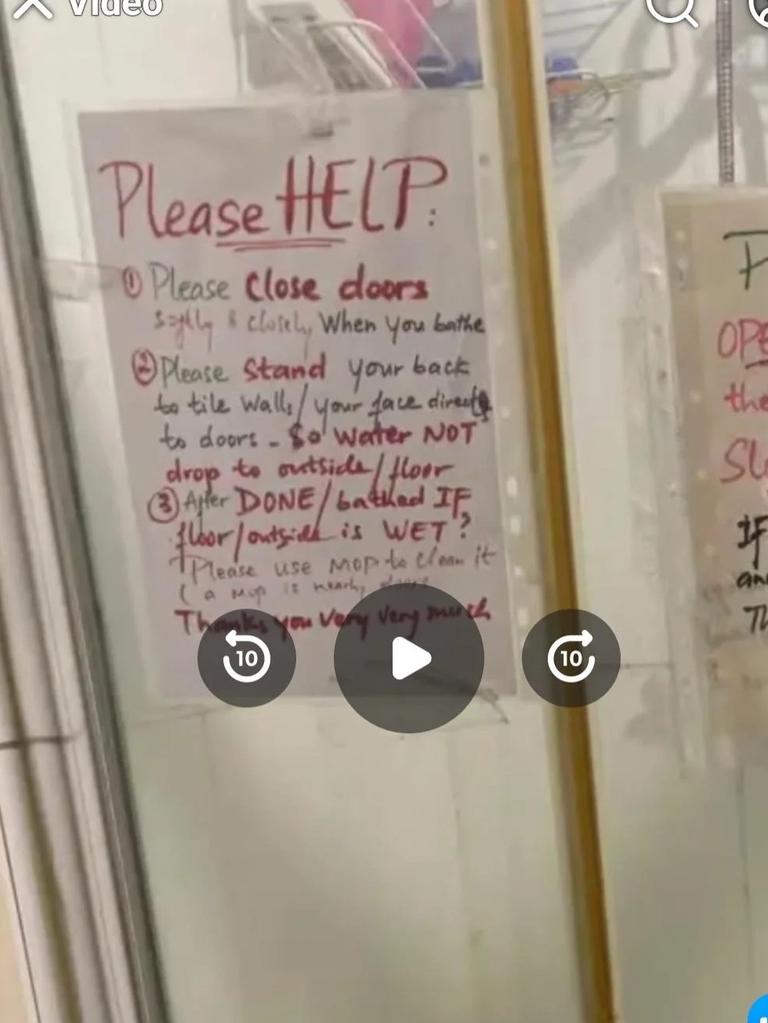 Video
Please HELP:
① Please Close doors
& closely When you bathe
② Please Stand your back
to tile walls/your face directly
to doors - So Water NOT
drop to outside/floor
③ After DONE/bathed IF
floor/outside is WET?
Please use MOP to clean it
(a mop is nearby
Thanks you Very Very much
10
10
P
OPE
the
SL
IF
an
Th